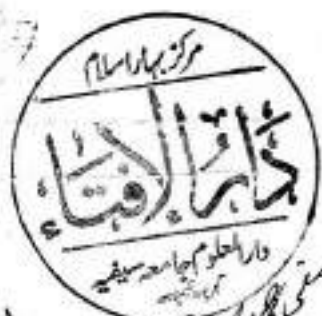 مرکز بہار اسلام
دَارُالاِفتَاء
دارالعلوم جامعہ سیفیہ